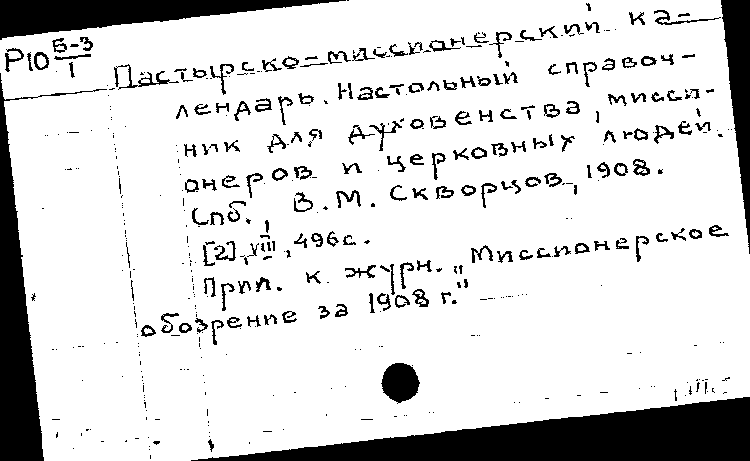 Р10 Б-3/1
Пастырско-миссионерский ка-
лендарь. Настольный справоч-
ник для духовенства, мисси-
онеров и церковных людей.
Спб., В.М. Скворцов, 1908.
[2], VIII, 496 с.
Прил. к журн. „Миссионерское
обозрение за 1908 г."